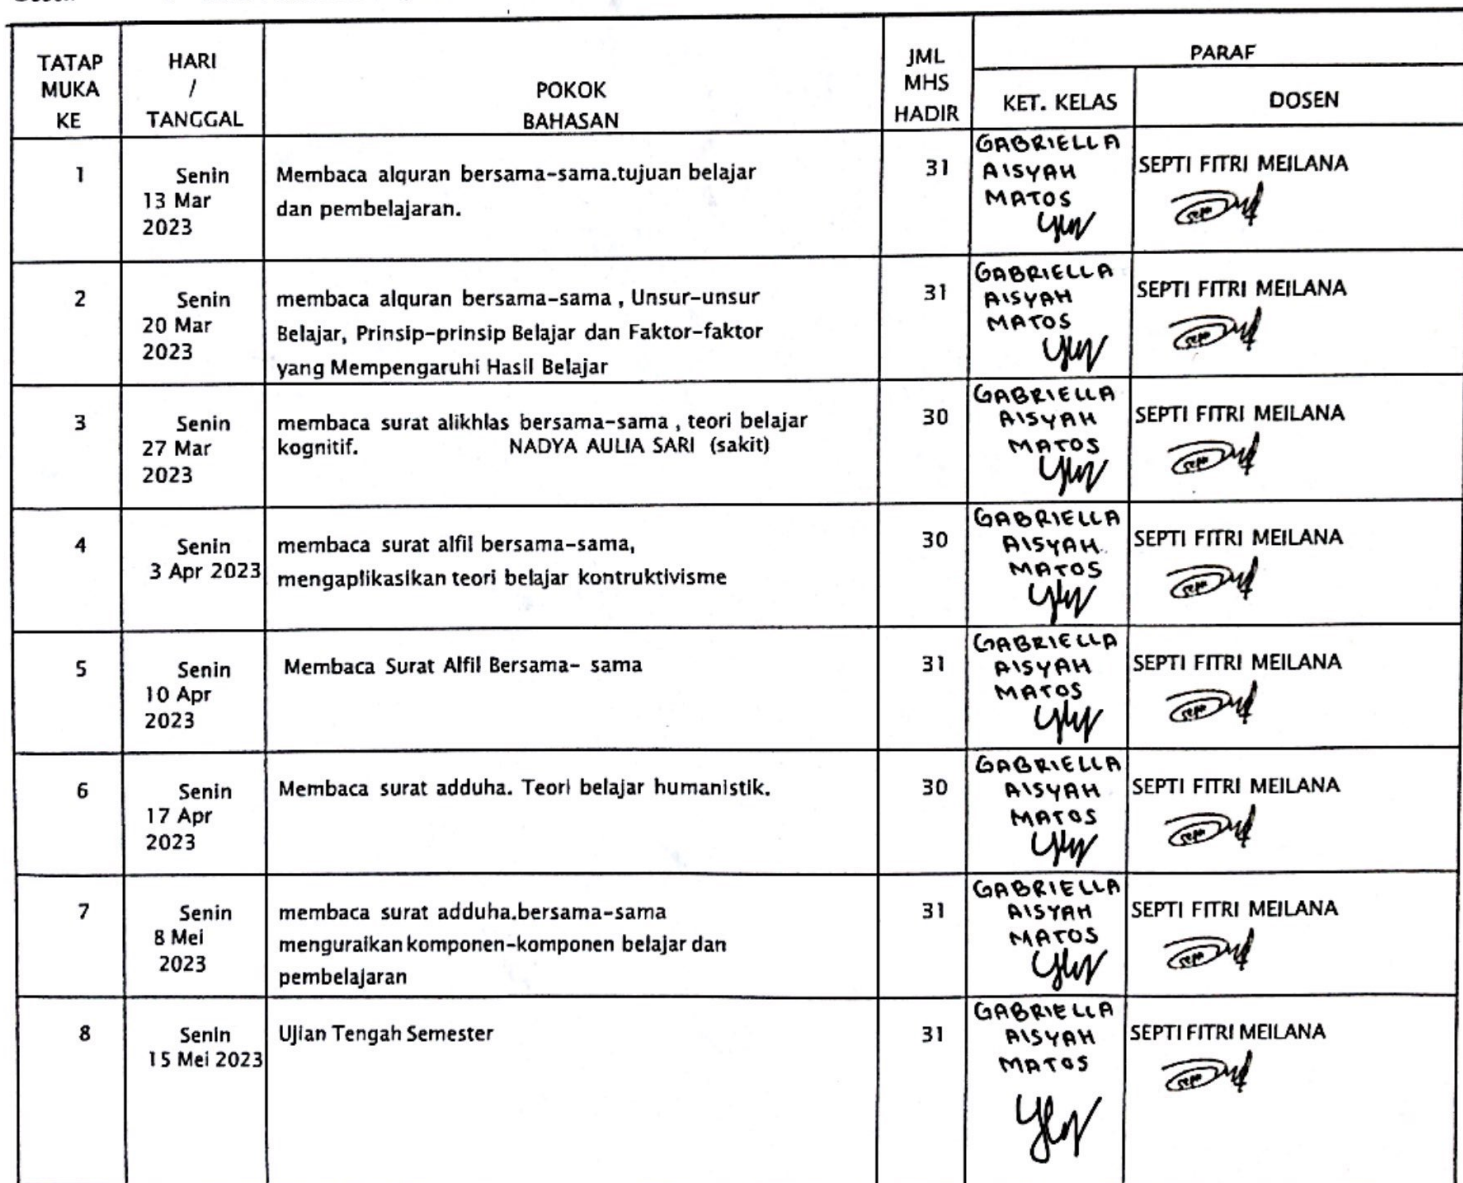 TATAP
MUKA
KE
HARI
/
TANGGAL
POKOK
BAHASAN
JML
MHS
HADIR
PARAF
KET. KELAS
DOSEN
1
Senin
13 Mar
2023
Membaca alquran bersama-sama.tujuan belajar
dan pembelajaran.
31
GABRIELLA
AISYAH
MATOS
SEPTI FITRI MEILANA
2
Senin
20 Mar
2023
membaca alquran bersama-sama , Unsur-unsur
Belajar, Prinsip-prinsip Belajar dan Faktor-faktor
yang Mempengaruhi Hasil Belajar
31
GABRIELLA
AISYAH
MATOS
SEPTI FITRI MEILANA
3
Senin
27 Mar
2023
membaca surat alikhlas bersama-sama , teori belajar
kognitif. NADYA AULIA SARI (sakit)
30
GABRIELLA
AISYAH
MATOS
SEPTI FITRI MEILANA
4
Senin
3 Apr 2023
membaca surat alfil bersama-sama,
mengaplikasikan teori belajar kontruktivisme
30
GABRIELLA
AISYAH
MATOS
SEPTI FITRI MEILANA
5
Senin
10 Apr
2023
Membaca Surat Alfil Bersama- sama
31
GABRIELLA
AISYAH
MATOS
SEPTI FITRI MEILANA
6
Senin
17 Apr
2023
Membaca surat adduha. Teori belajar humanistik.
30
GABRIELLA
AISYAH
MATOS
SEPTI FITRI MEILANA
7
Senin
8 Mei
2023
membaca surat adduha.bersama-sama
menguraikan komponen-komponen belajar dan
pembelajaran
31
GABRIELLA
AISYAH
MATOS
SEPTI FITRI MEILANA
8
Senin
15 Mei 2023
Ujian Tengah Semester
31
GABRIELLA
AISYAH
MATOS
SEPTI FITRI MEILANA